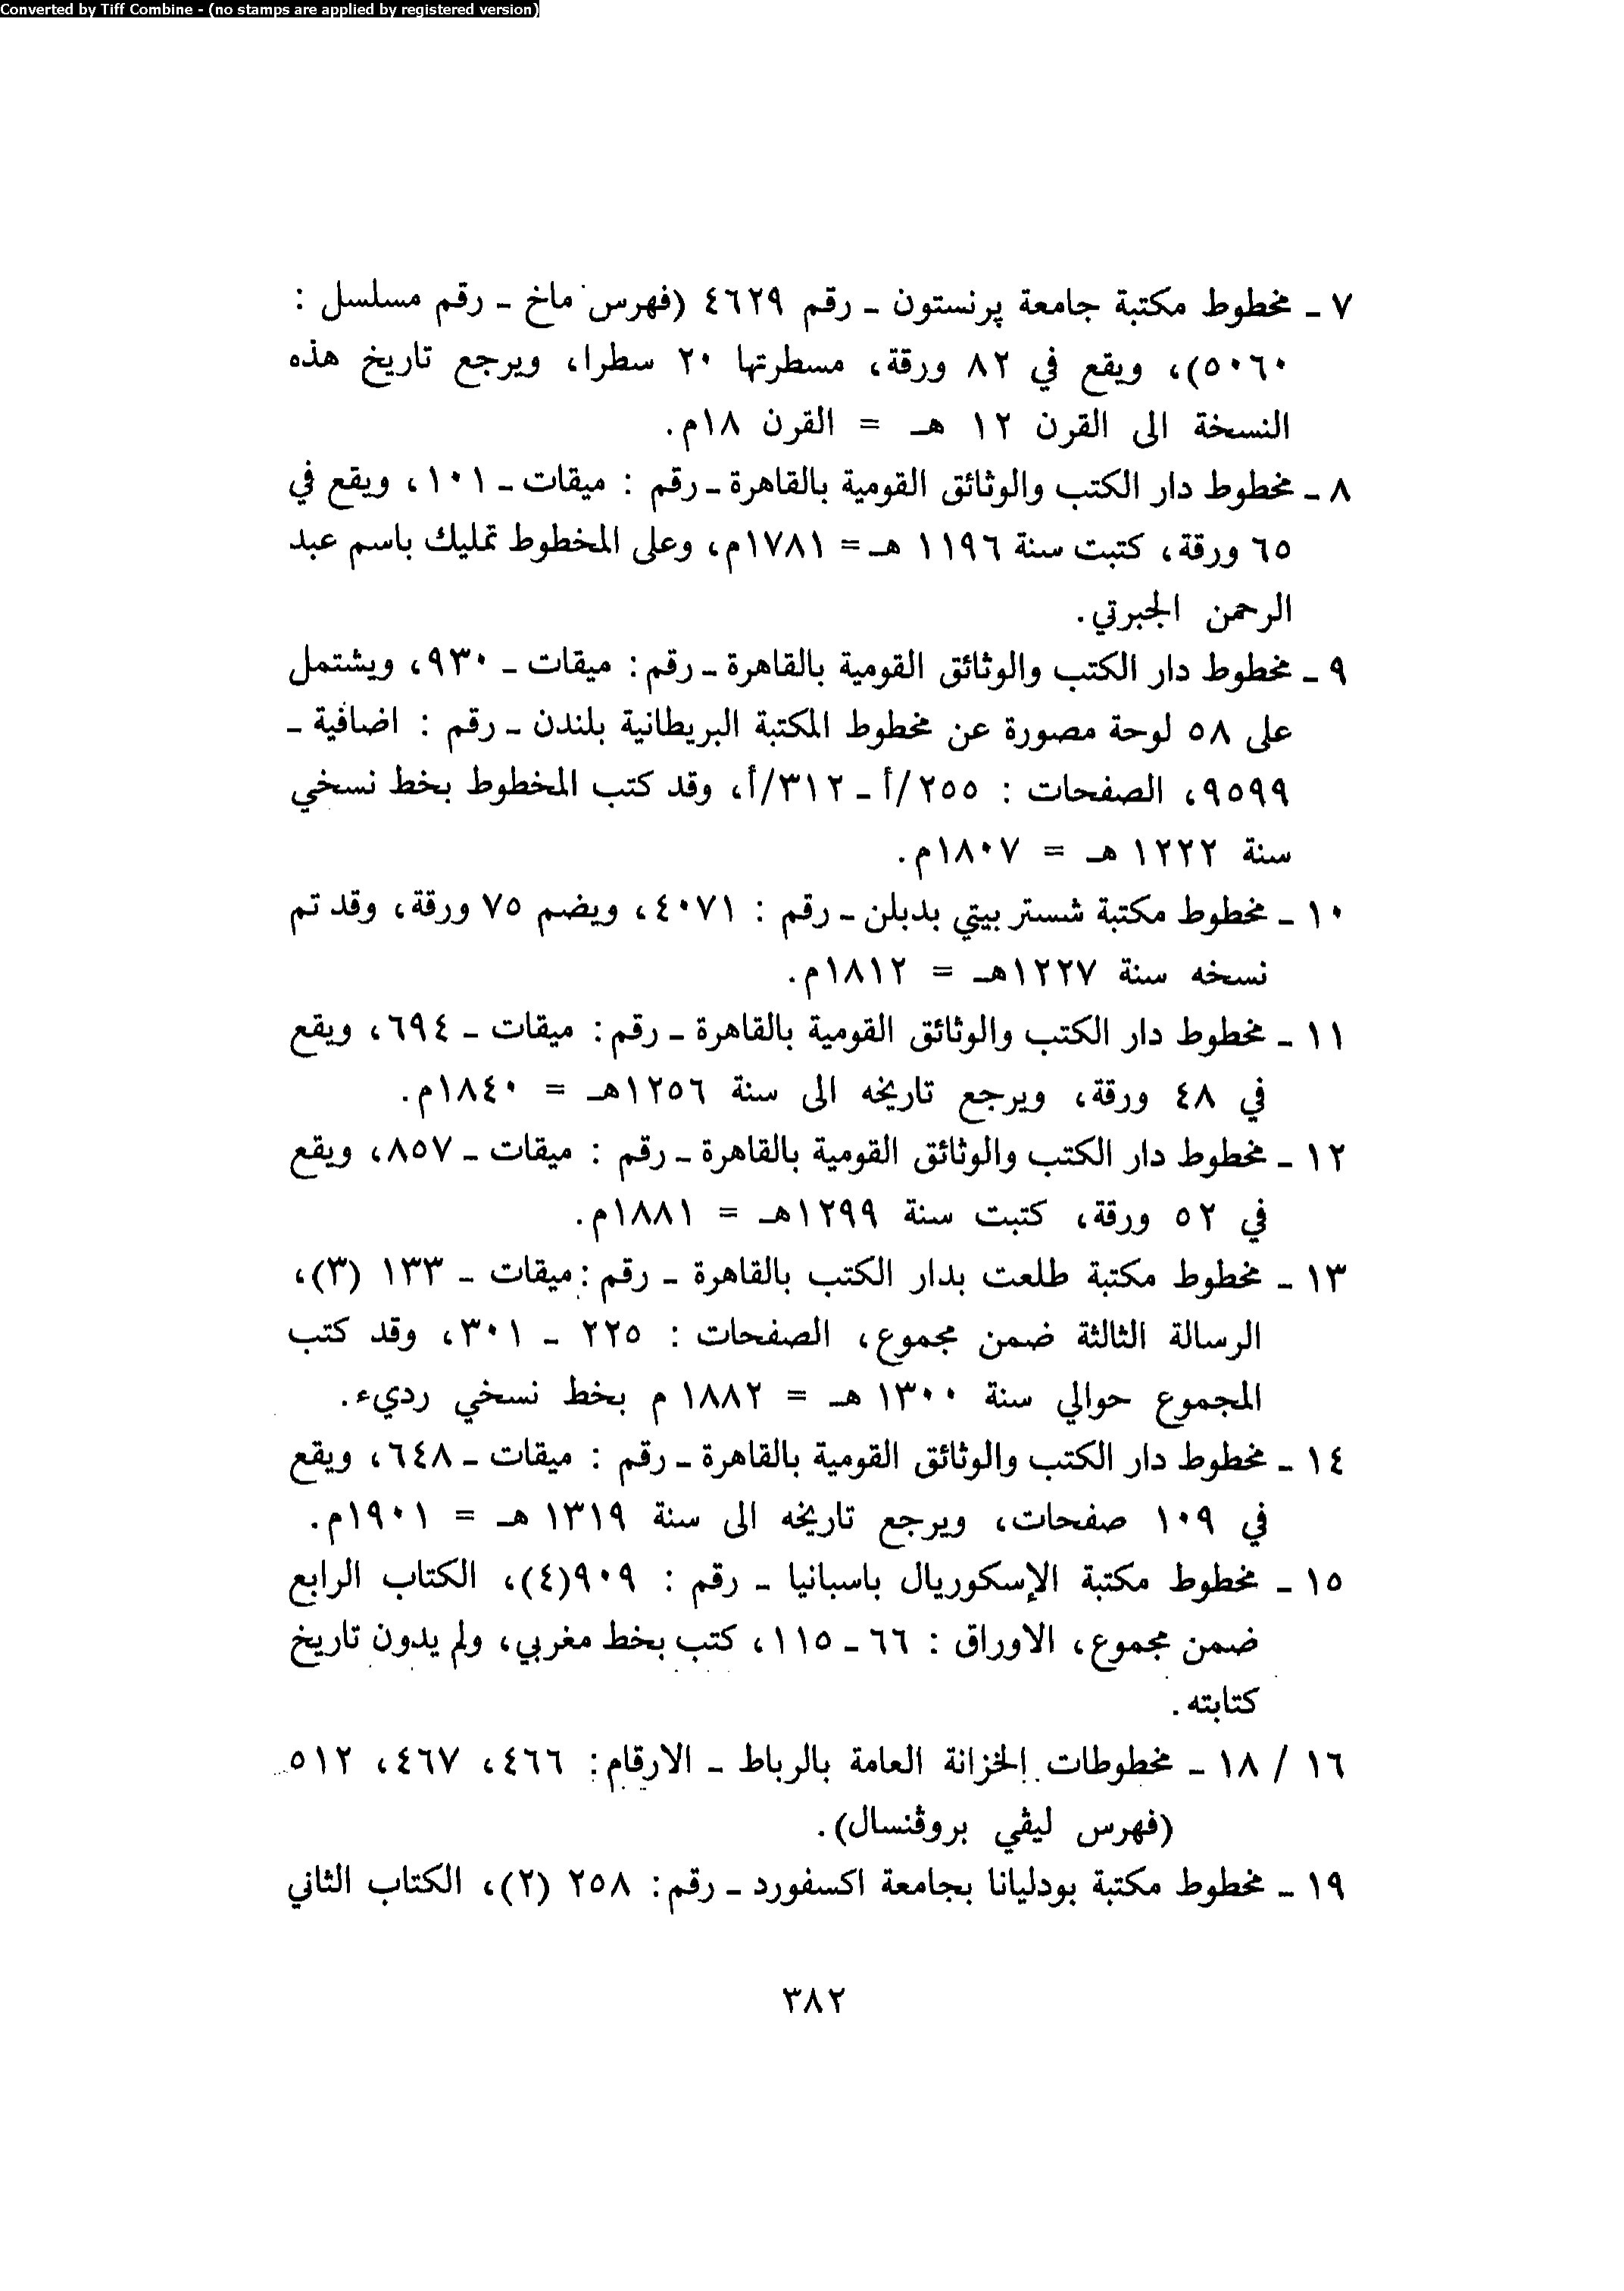 Converted by Tiff Combine - (no stamps are applied by registered version)
٧ ـ مخطوط مكتبة جامعة پرنستون ـ رقم ٤٦٢٩ (فهرس ماخ ـ رقم مسلسل :
٥٠٦٠)، ويقع في ٨٢ ورقة، مسطرتها ٢٠ سطرا، ويرجع تاريخ هذه
النسخة الى القرن ١٢ هـ = القرن ١٨م.
٨ ـ مخطوط دار الكتب والوثائق القومية بالقاهرة ـ رقم : ميقات ـ ١٠١، ويقع في
٦٥ ورقة، كتبت سنة ١١٩٦ هـ = ١٧٨١م، وعلى المخطوط تمليك باسم عبد
الرحمن الجبرتي.
٩ ـ مخطوط دار الكتب والوثائق القومية بالقاهرة ـ رقم: ميقات ـ ٩٣٠، ويشتمل
على ٥٨ لوحة مصورة عن مخطوط المكتبة البريطانية بلندن ـ رقم : اضافية ـ
٩٥٩٩، الصفحات : ٢٥٥/أ ـ ٣١٢/أ، وقد كتب المخطوط بخط نسخي
سنة ١٢٢٢ هـ = ١٨٠٧م.
١٠ ـ مخطوط مكتبة شستر بيتي بدبلن ـ رقم : ٤٠٧١، ويضم ٧٥ ورقة، وقد تم
نسخه سنة ١٢٢٧هـ = ١٨١٢م.
١١ ـ مخطوط دار الكتب والوثائق القومية بالقاهرة ـ رقم: ميقات ـ ٦٩٤، ويقع
في ٤٨ ورقة، ويرجع تاريخه الى سنة ١٢٥٦هـ = ١٨٤٠م.
١٢ ـ مخطوط دار الكتب والوثائق القومية بالقاهرة ـ رقم : ميقات ـ ٨٥٧، ويقع
في ٥٢ ورقة، كتبت سنة ١٢٩٩هـ = ١٨٨١م.
١٣ ـ مخطوط مكتبة طلعت بدار الكتب بالقاهرة ـ رقم : ميقات ـ ١٣٣ (٣)،
الرسالة الثالثة ضمن مجموع، الصفحات : ٢٢٥ ـ ٣٠١، وقد كتب
المجموع حوالي سنة ١٣٠٠ هـ = ١٨٨٢ م بخط نسخي رديء.
١٤ ـ مخطوط دار الكتب والوثائق القومية بالقاهرة ـ رقم : ميقات ـ ٦٤٨، ويقع
في ١٠٩ صفحات، ويرجع تاريخه الى سنة ١٣١٩ هـ = ١٩٠١م.
١٥ ـ مخطوط مكتبة الإسكوريال باسبانيا ـ رقم : ٩٠٩(٤)، الكتاب الرابع
ضمن مجموع، الاوراق : ٦٦ ـ ١١٥، كتب بخط مغربي، ولم يدون تاريخ
كتابته.
١٦ / ١٨ ـ مخطوطات الخزانة العامة بالرباط ـ الارقام: ٤٦٦، ٤٦٧، ٥١٢
(فهرس ليڤي بروڤنسال).
١٩ ـ مخطوط مكتبة بودليانا بجامعة اكسفورد ـ رقم: ٢٥٨ (٢)، الكتاب الثاني
٣٨٢